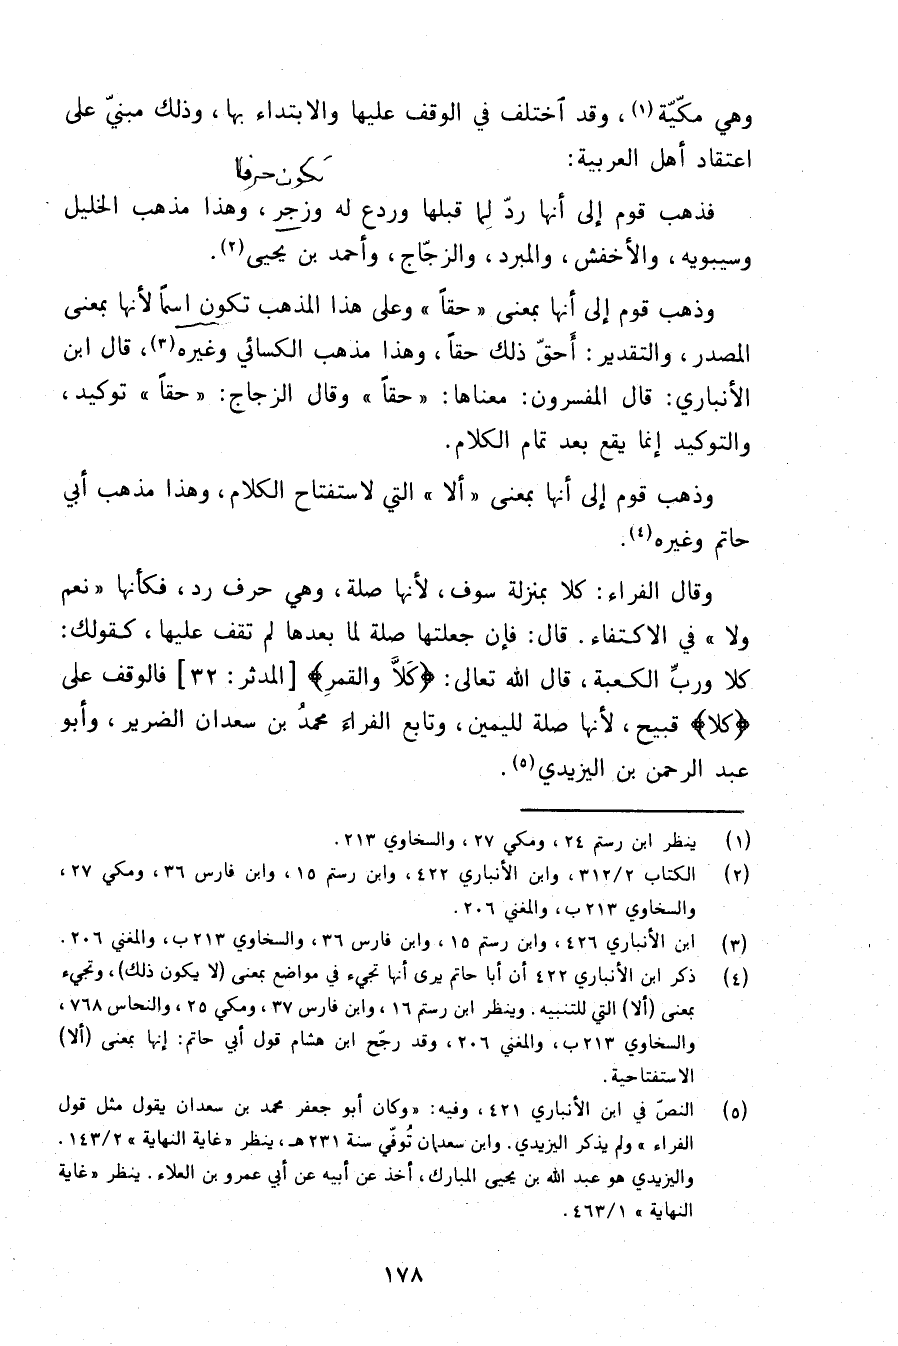 وهي مكّيّة(١)، وقد ٱختلف في الوقف عليها والابتداء بها، وذلك مبنيّ على
اعتقاد أهل العربية:
تكون حرفا
فذهب قوم إلى أنها ردّ لِما قبلها وردع له وزجر، وهذا مذهب الخليل
وسيبويه، والأخفش، والمبرد، والزجّاج، وأحمد بن يحيى(٢).
وذهب قوم إلى أنها بمعنى «حقاً» وعلى هذا المذهب تكون اسماً لأنها بمعنى
المصدر، والتقدير: أَحقّ ذلك حقاً، وهذا مذهب الكسائي وغيره(٣)، قال ابن
الأنباري: قال المفسرون: معناها: «حقاً» وقال الزجاج: «حقاً» توكيد،
والتوكيد إنما يقع بعد تمام الكلام.
وذهب قوم إلى أنها بمعنى «ألا» التي لاستفتاح الكلام، وهذا مذهب أبي
حاتم وغيره(٤).
وقال الفراء: كلا بمنزلة سوف، لأنها صلة، وهي حرف رد، فكأنها «نعم
ولا» في الاكتفاء. قال: فإن جعلتها صلة لما بعدها لم تقف عليها، كقولك:
كلا وربِّ الكعبة، قال الله تعالى: ﴿كَلاَّ والقمرِ﴾ [المدثر: ٣٢] فالوقف على
﴿كلا﴾ قبيح، لأنها صلة لليمين، وتابع الفراءَ محمدُ بن سعدان الضرير، وأبو
عبد الرحمن بن اليزيدي(٥).
(١) ينظر ابن رستم ٢٤، ومكي ٢٧، والسخاوي ٢١٣.
(٢) الكتاب ٣١٢/٢، وابن الأنباري ٤٢٢، وابن رستم ١٥، وابن فارس ٣٦، ومكي ٢٧،
والسخاوي ٢١٣ب، والمغني ٢٠٦.
(٣) ابن الأنباري ٤٢٦، وابن رستم ١٥، وابن فارس ٣٦، والسخاوي ٢١٣ب، والمغني ٢٠٦.
(٤) ذكر ابن الأنباري ٤٢٢ أن أبا حاتم يرى أنها تجيء في مواضع بمعنى (لا يكون ذلك)، وتجيء
بمعنى (ألا) التي للتنبيه. وينظر ابن رستم ١٦، وابن فارس ٣٧، ومكي ٢٥، والنحاس ٧٦٨،
والسخاوي ٢١٣ب، والمغني ٢٠٦، وقد رجّح ابن هشام قول أبي حاتم: إنها بمعنى (ألا)
الاستفتاحية.
(٥) النصّ في ابن الأنباري ٤٢١، وفيه: «وكان أبو جعفر محمد بن سعدان يقول مثل قول
الفراء» ولم يذكر اليزيدي. وابن سعدان تُوفّي سنة ٢٣١هـ، ينظر «غاية النهاية» ١٤٣/٢.
واليزيدي هو عبد الله بن يحيى المبارك، أخذ عن أبيه عن أبي عمرو بن العلاء. ينظر «غاية
النهاية» ٤٦٣/١.
١٧٨